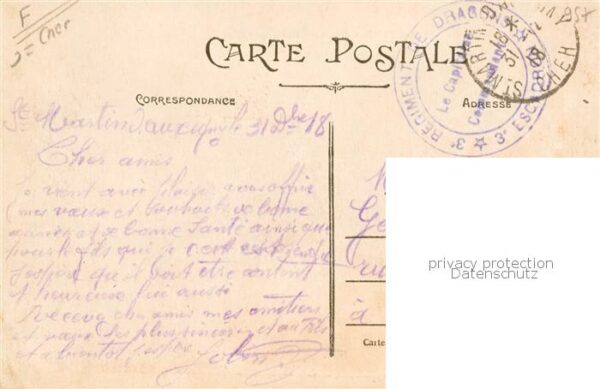 F
= Cher
257
CARTE POSTALE
CORRESPONDANCE
ADRESSE
3e RÉGIMENT DE DRAGONS
3e ESCADRON
Le Capitaine
Commandant
ST MARTIN D'AUXIGNY
CHER
31
12
18
St Martin d'auxigny le 31 Dbre 18
Cher amis
Je vient avec plaisir vous offrir
mes vœux et souhaits de bonne
année et de bonne Santé ainsi que
pour le fils qui
j'espère qu'il doit être content
et heureux lui aussi
Recevez cher amis mes amitiers
et vœux les plus sincères
et a bientot j'espère
à
Carte
privacy protection
Datenschutz